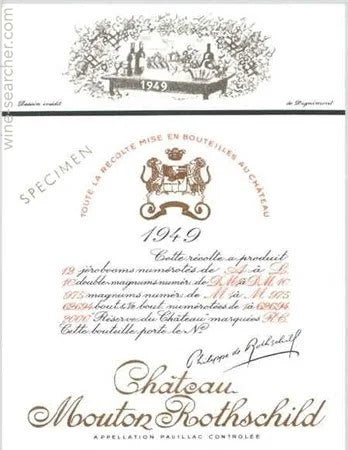 wine-searcher.com
1949
Dessin inédit
de Dignimont
SPECIMEN
TOUTE LA RÉCOLTE MISE EN BOUTEILLES AU CHÂTEAU
1949
Cette récolte a produit
19 jéroboams numérotés de A à L
10 double-magnums numér. de D.M. à D.M. 10
975 magnums numér. de M à M 975
bout. & ½ bout. numérotées de à
2000 "Réserve du Château" marquées R.C.
Cette bouteille porte le No
Philippe de Rothschild
Château
Mouton Rothschild
APPELLATION PAUILLAC CONTRÔLÉE